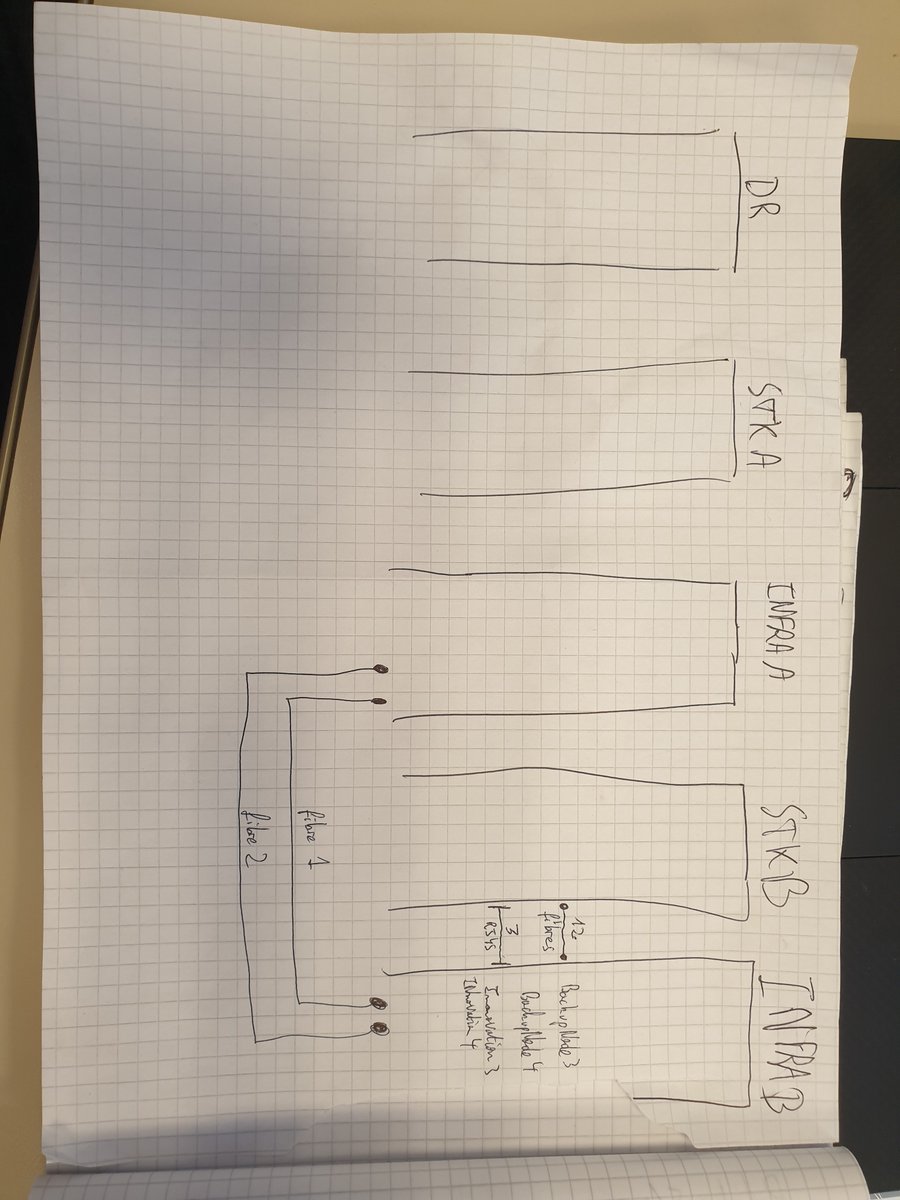 DR
STK A
INFRA A
STK B
INFRA B
12
fibres
3
RJ45
BackupNode 3
BackupNode 4
Innovation 3
Innovation 4
fibre 1
fibre 2